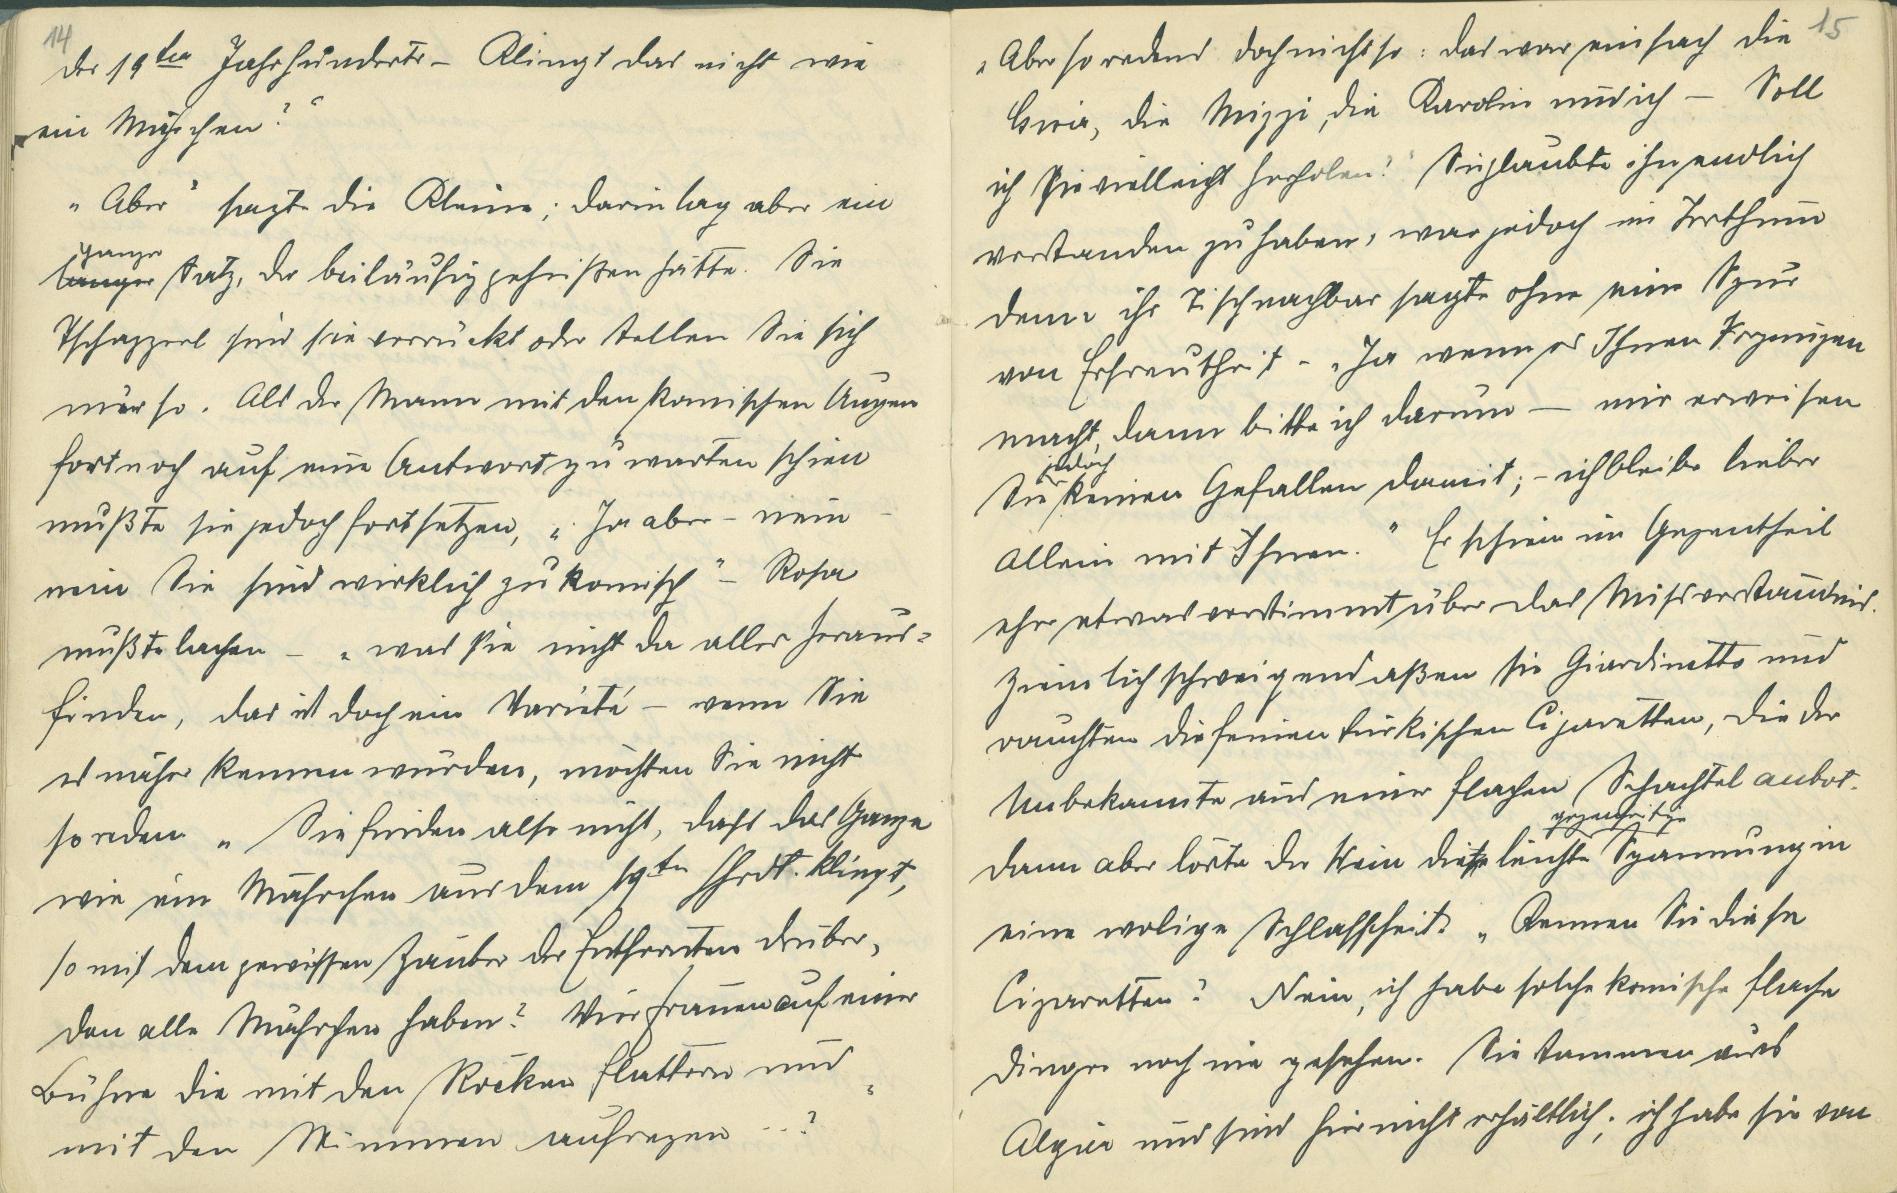 14
des 19ten Jahrhunderts – Klingt das nicht wie
ein Mährchen?“
„Aber“ sagte die Kleine; darin lag aber ein
ganzer
langer Satz, der beiläufig geheißen hätte. Sie
Tschapperl sind sie verrückt oder stellen Sie sich
nur so. Als der Mann mit den komischen Augen
fort noch auf eine Antwort zu warten schien
mußte sie jedoch fortsetzen, „Ja aber – nein –
nein Sie sind wirklich zu komisch“ – Rosa
mußte lachen – „was Sie nicht da alles heraus-
finden, das ist doch ein Varieté – wenn Sie
es näher kennen würden, möchten Sie nicht
so reden „Sie finden also nicht, dass das Ganze
wie ein Mährchen aus dem 19ten Jhrdt. klingt,
so mit dem gewissen Zauber der Entfernten drüber,
den alle Mährchen haben? Vier Frauen auf einer
Bühne die mit den Röcken flattern und
mit den Stimmen aufregen ...?“
15
„Aber so redens doch nicht so: das war einfach die
die Mizzi, die Karolin und ich – Soll
ich Sie vielleicht herholen?“ Sie glaubte ihn endlich
verstanden zu haben, war jedoch im Irrthum
denn ihr Tischnachbar sagte ohne eine Spur
von Erfreutheit – „Ja wenn es Ihnen Vergnügen
macht, dann bitte ich darum – mir erweisen
jedoch
Sie keinen Gefallen damit; – ich bleibe lieber
allein mit Ihnen.“ Er schien im Gegentheil
eher etwas verstimmt über das Missverständnis.
Ziemlich schweigend aßen sie Giardinetto und
rauchten die feinen türkischen Cigaretten, die der
Unbekannte aus einer flachen Schachtel anbot.
gegenseitige
Dann aber löste der Wein diese leichte Spannung in
eine wolige Schlaffheit. „Kennen Sie diese
Cigaretten? Nein, ich habe solche komische flache
Dinger noch nie gesehen. Sie stammen aus
Algier und sind hier nicht erhältlich; ich habe sie von